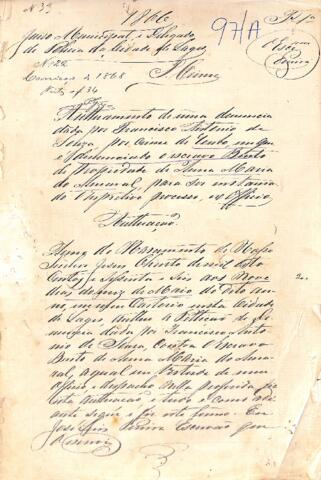 1866
97/A
Juiso Municipal, e Delegado
de Policia da Cidade de Lages
Nº 22
1868
O Escram
Pereira
Authuamento de uma denuncia
dada por Francisco Antonio de
Souza, por crime de em que
é denunciado o escravo Bento
de propriedade de Anna Maria
do Amaral, para ser instaurado
o respectivo processo, ex Officio
Authuação.
Anno do Nascimento de Nosso
Senhor Jesus Christo de mil oito
Centos, e Sessenta e Seis aos Nove
dias do mez de Maio do dito An
no, em meu Cartorio nesta Cidade
de Lages Autho a Petição de de
nuncia dada por Francisco Anto
nio de Souza, Contra o Escravo
Bento de Anna Maria do Ama
ral, a qual em virtude de meu
Officio e despacho nella proferido fis
esta authuação e tudo é como adi
ante segue e fiz este termo. Eu
José Luis Pereira Escrivão que
o Escrevi